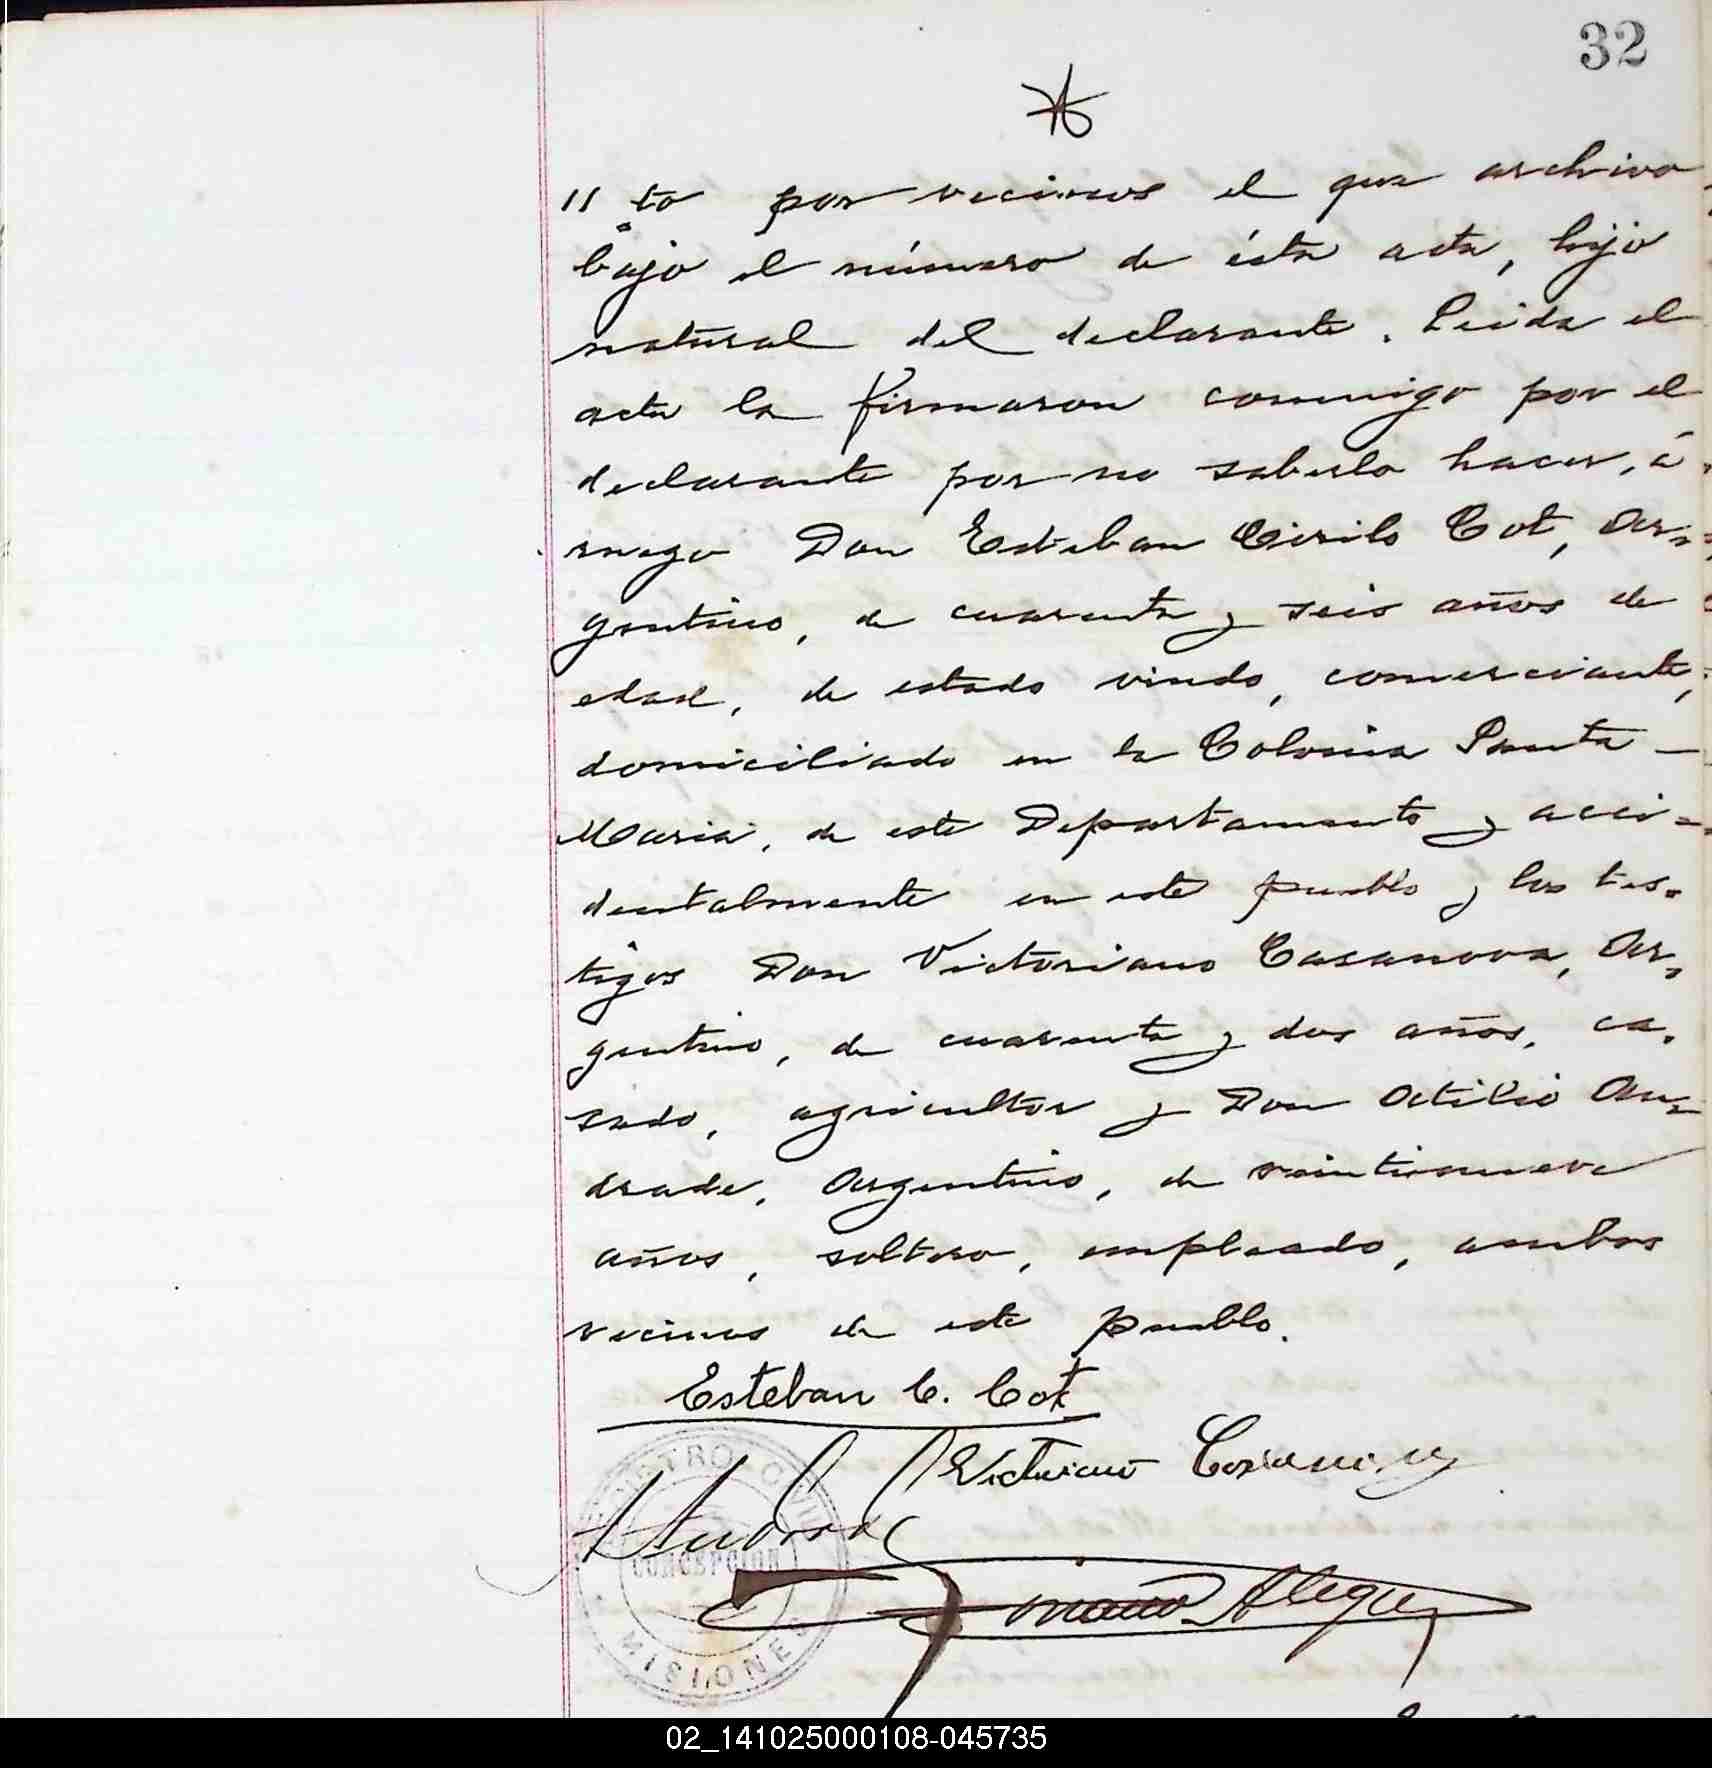 32
"to por vecinos el que archivo
bajo el número de ésta acta, hijo
natural del declarante. Leida el
acta la firmaron conmigo por el
declarante por no saberlo hacer, á
ruego Don Esteban Cirilo Cot, Ar-
gentino, de cuarenta y seis años de
edad, de estado viudo, comerciante,
domiciliado en la Colonia Santa -
Maria, de este Departamento y acci-
dentalmente en este pueblo y los tes-
tigos Don Victoriano Casanova, Ar-
gentino, de cuarenta y dos años, ca-
sado, agricultor y Don Atilio An-
drade, Argentino, de veintinueve
años, soltero, empleado, ambos
vecinos de este pueblo.
Esteban C. Cot
Victoriano Casanova
REGISTRO CIVIL
Andrade
CONCEPCION
Alegre
MISIONES
02_141025000108-045735